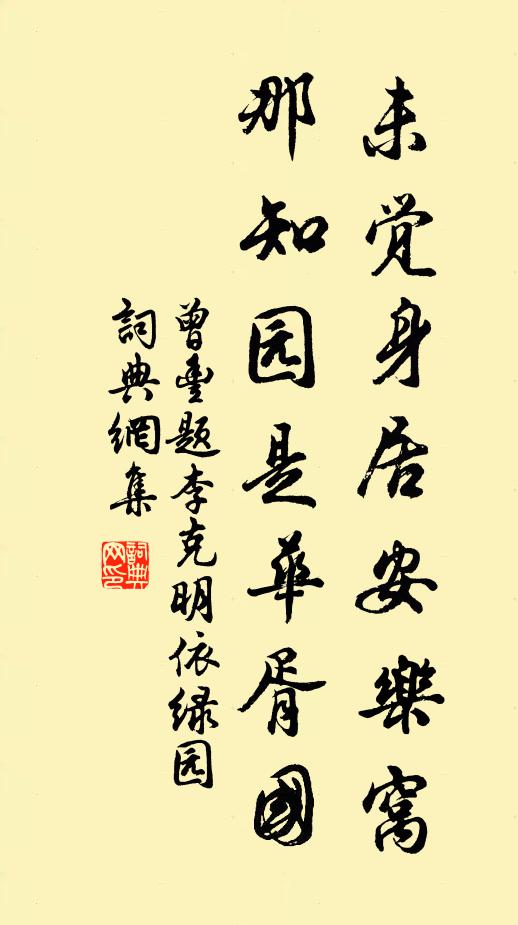 未觉身居安樂窩
那知园是華胥國
曾豐题李克明依绿园
詞典網集
詞典网印